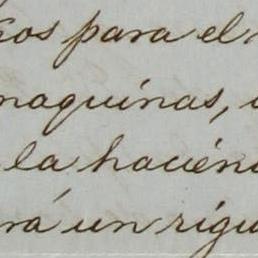 para el
maquinas,
la hacien
rá un rigu